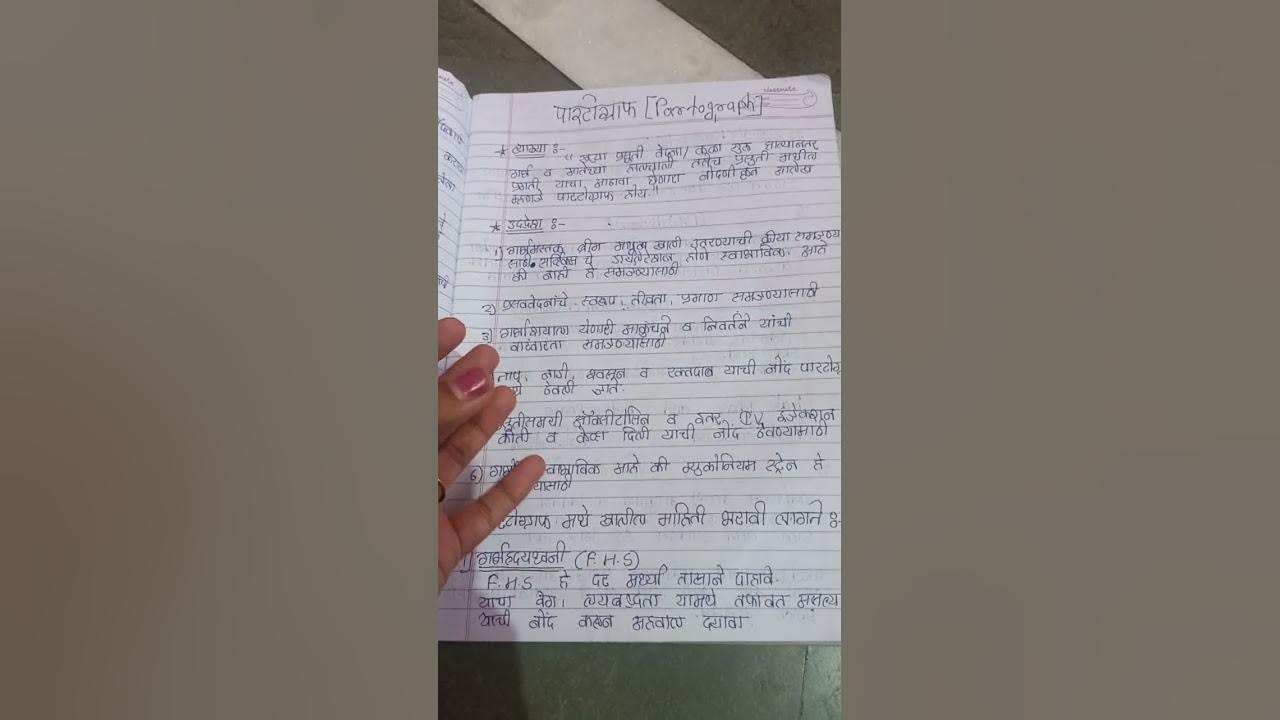 classmate
पारटोग्राफ [Partograph]
* व्याख्या :-
"खऱ्या प्रसुती वेदना/ कळा सुरू झाल्यानंतर
गर्भ व मातेच्या तसेच प्रसुती मधील
प्रगती याचा आढावा घेणारा नोंदणीकृत आलेख
म्हणजे पारटोग्राफ होय."
* उद्देश :-
1) गर्भमस्तक खाली उतरण्याची क्रीया समजण्या
साठी. सर्विक्स चे डायलेटेशन होणे स्वाभाविक आहे
की नाही ते समजण्यासाठी
2) प्रसववेदनांचे स्वरूप, तीव्रता, प्रमाण समजण्यासाठी
3) गर्भाशयात येणारी आकुंचने व निवर्तने यांची
वारंवारता समजण्यासाठी
ताप, नाडी, श्वसन व रक्तदाब याची नोंद पारटोग्रा
ठेवली जाते.
ऑक्सीटोसिन व इतर IV इंजेक्शन
कीती व केव्हा दिली याची नोंद ठेवण्यासाठी
6) स्वाभाविक आहे की म्युकोनियम स्ट्रेन हे
मधे खालील माहिती भरावी लागते :-
1) गर्भहृदयध्वनी (F.H.S)
F.H.S हे दर अर्ध्या तासाने पाहावे.
याचा वेग, लयबद्धता यामधे तफावत असल्या
याची नोंद करून अहवाल द्यावा